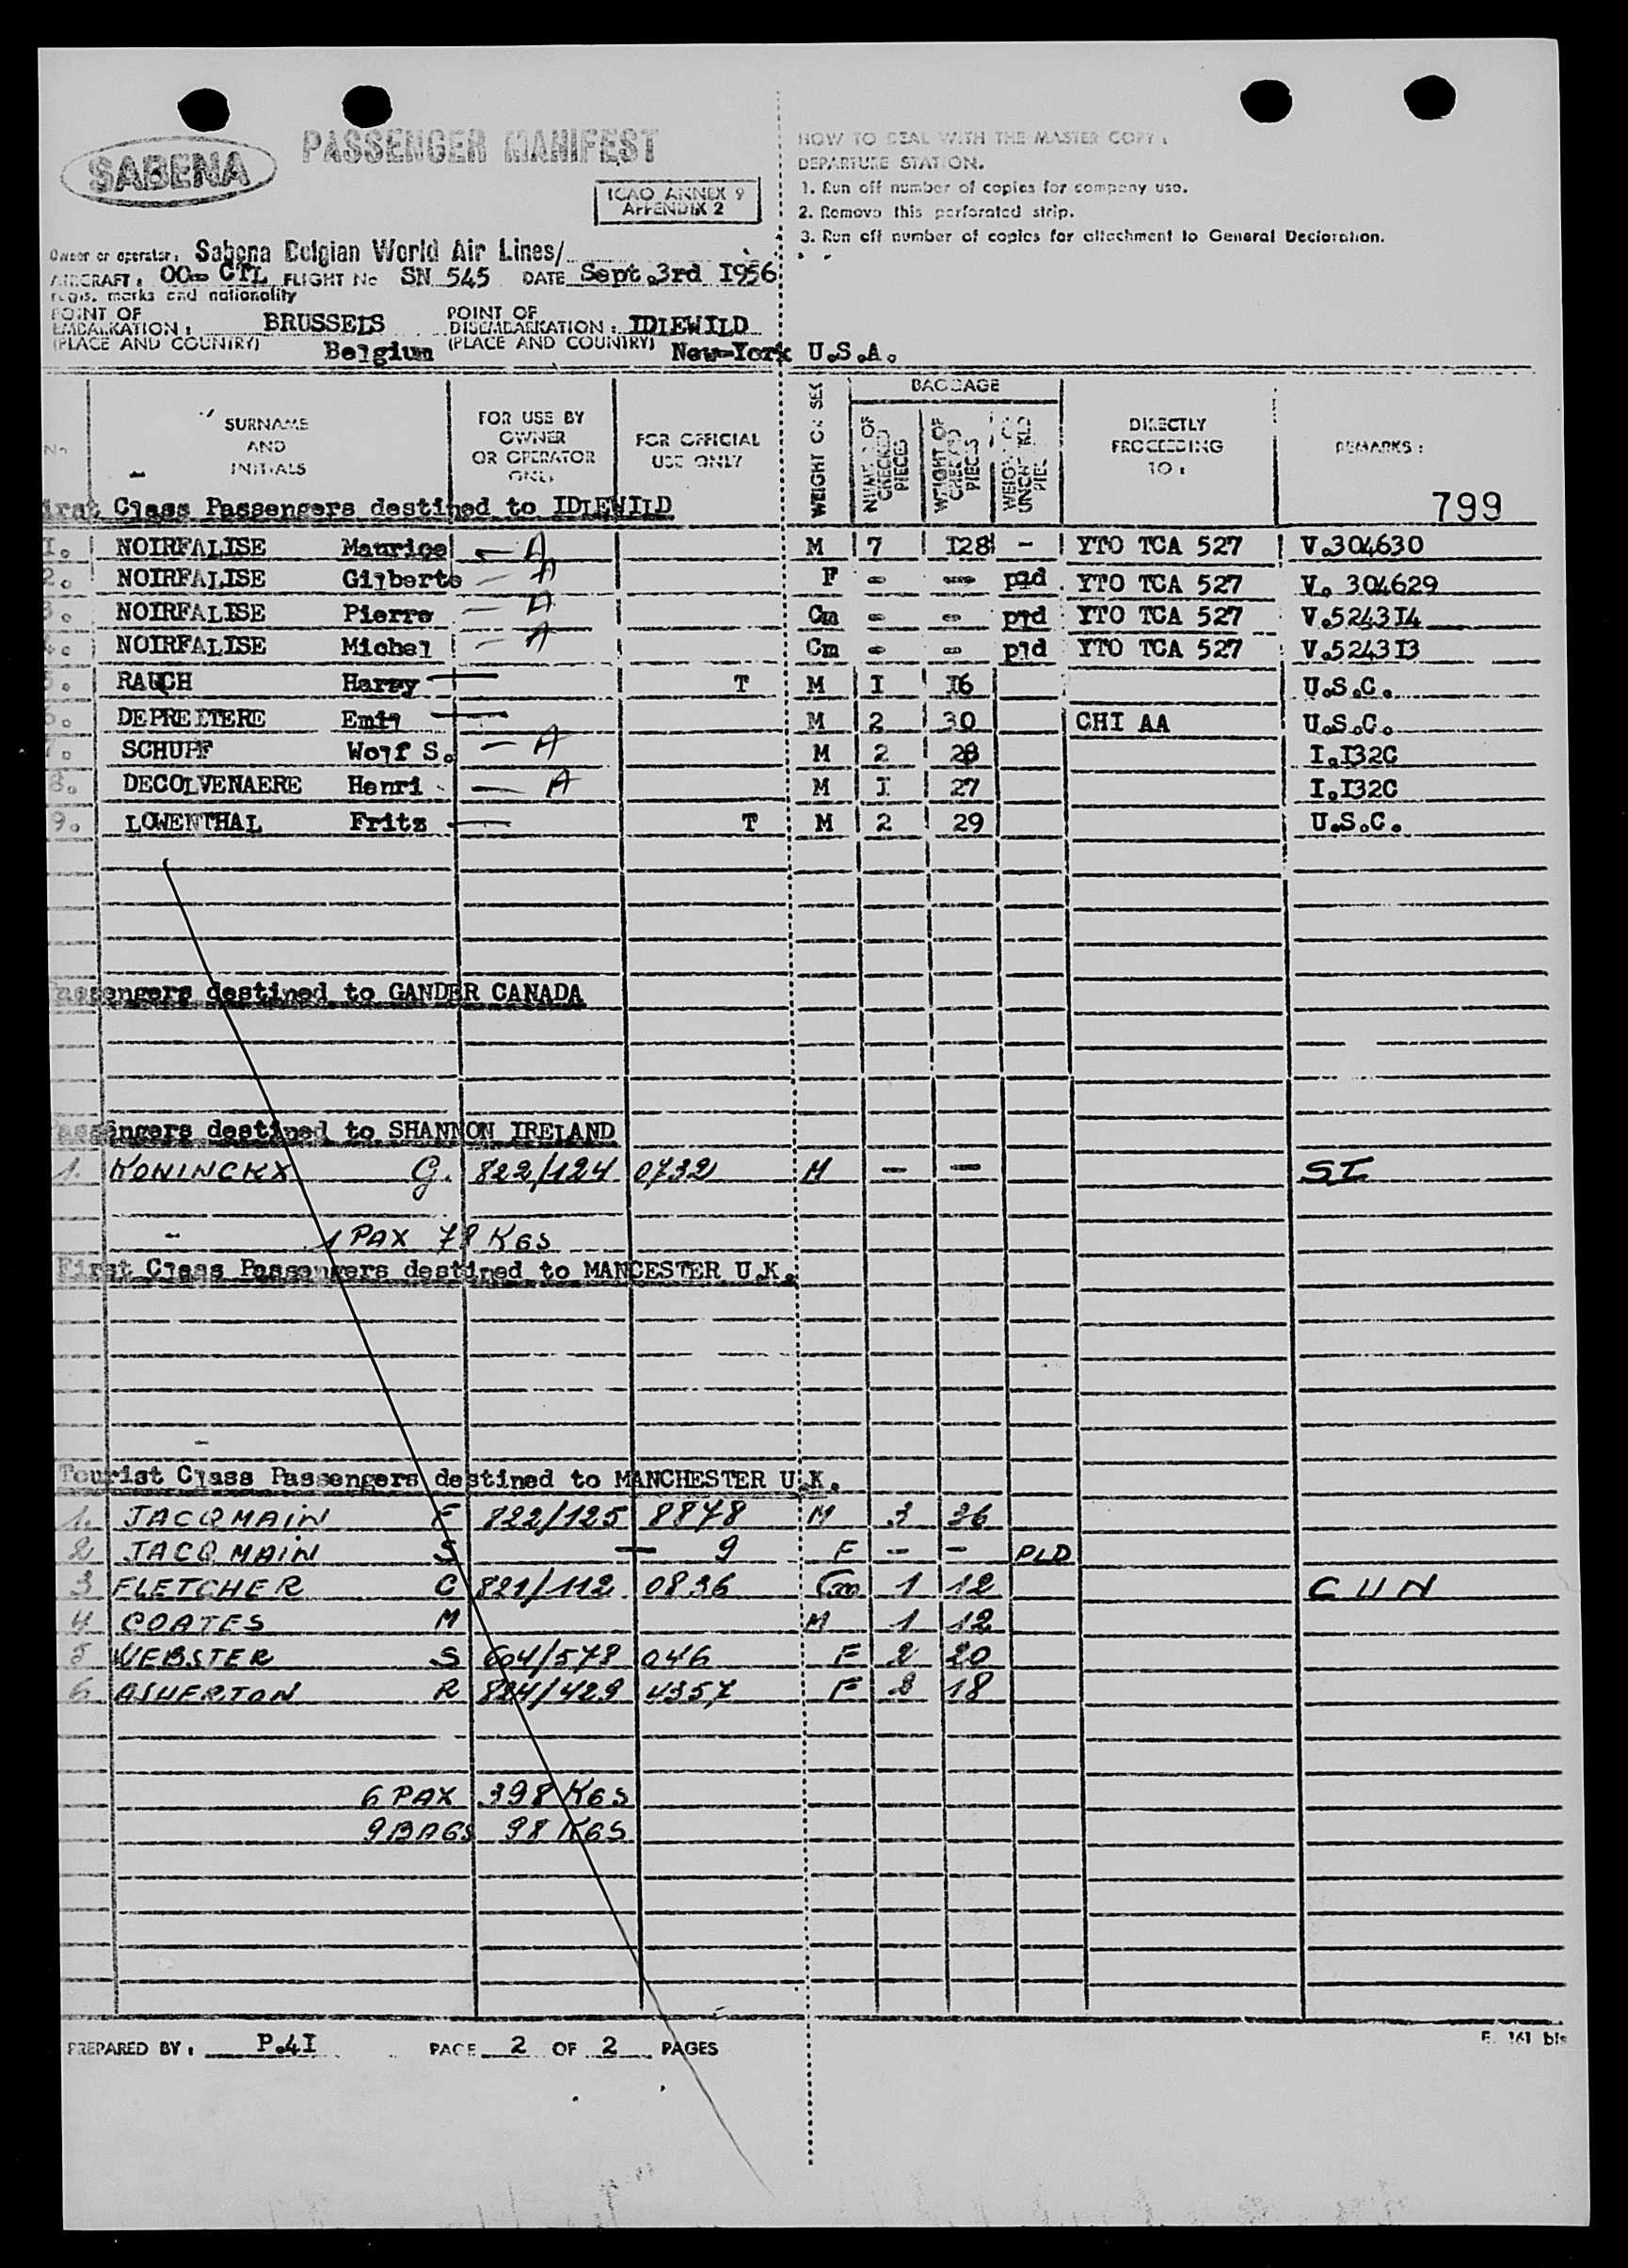 SABENA
PASSENGER MANIFEST
ICAO ANNEX 9
APPENDIX 2
HOW TO DEAL WITH THE MASTER COPY :
DEPARTURE STATION.
1. Run off number of copies for company use.
2. Remove this perforated strip.
3. Run off number of copies for attachment to General Declaration.
Owner or operator: Sabena Belgian World Air Lines/
AIRCRAFT: OO-CTL FLIGHT No SN 545 DATE Sept.3rd I956
regis. marks and nationality
POINT OF EMBARKATION: BRUSSELS POINT OF DISEMBARKATION: IDLEWILD
(PLACE AND COUNTRY) Belgium (PLACE AND COUNTRY) New-York U.S.A.
No SURNAME AND INITIALS FOR USE BY OWNER OR OPERATOR ONLY FOR OFFICIAL USE ONLY WEIGHT OR SEX BAGGAGE NUMBER OF CHECKED PIECES WEIGHT OF CHECKED PIECES DIRECTLY PROCEEDING TO: REMARKS:
irst Class Passengers destined to IDLEWILD 799
I. NOIRFALISE Maurice - A M 7 I28 - YTO TCA 527 V.304630
2. NOIRFALISE Gilberte - A F - - pld YTO TCA 527 V. 304629
3. NOIRFALISE Pierre - A Cm - - pld YTO TCA 527 V.5243I4
4. NOIRFALISE Michel - A Cm - - pld YTO TCA 527 V.5243I3
5. RAUCH Harry - T M I I6 U.S.C.
6. DEPREITERE Emil - M 2 30 CHI AA U.S.C.
7. SCHUPF Wolf S. - A M 2 28 I.I32C
8. DECOLVENAERE Henri - A M I 27 I.I32C
9. LOWENTHAL Fritz - T M 2 29 U.S.C.
assengers destined to GANDER CANADA
assengers destined to SHANNON IRELAND
1. KONINCKX G. 822/124 0732 M - - SI
1 PAX 78 KGS
First Class Passengers destined to MANCESTER U.K.
Tourist Class Passengers destined to MANCHESTER U.K.
1. JACQMAIN F 822/125 8878 M 3 36
2 JACQMAIN S - 9 F - - PLD
3 FLETCHER C 821/112 0836 Cm 1 12 CUN
4 COATES M M 1 12
5 WEBSTER S 604/578 046 F 2 20
6 ASHERTON R 4357 F 2 18
6 PAX 398 KGS
9 BAGS 98 KGS
PREPARED BY: P.4I PAGE 2 OF 2 PAGES
F. 161 bis